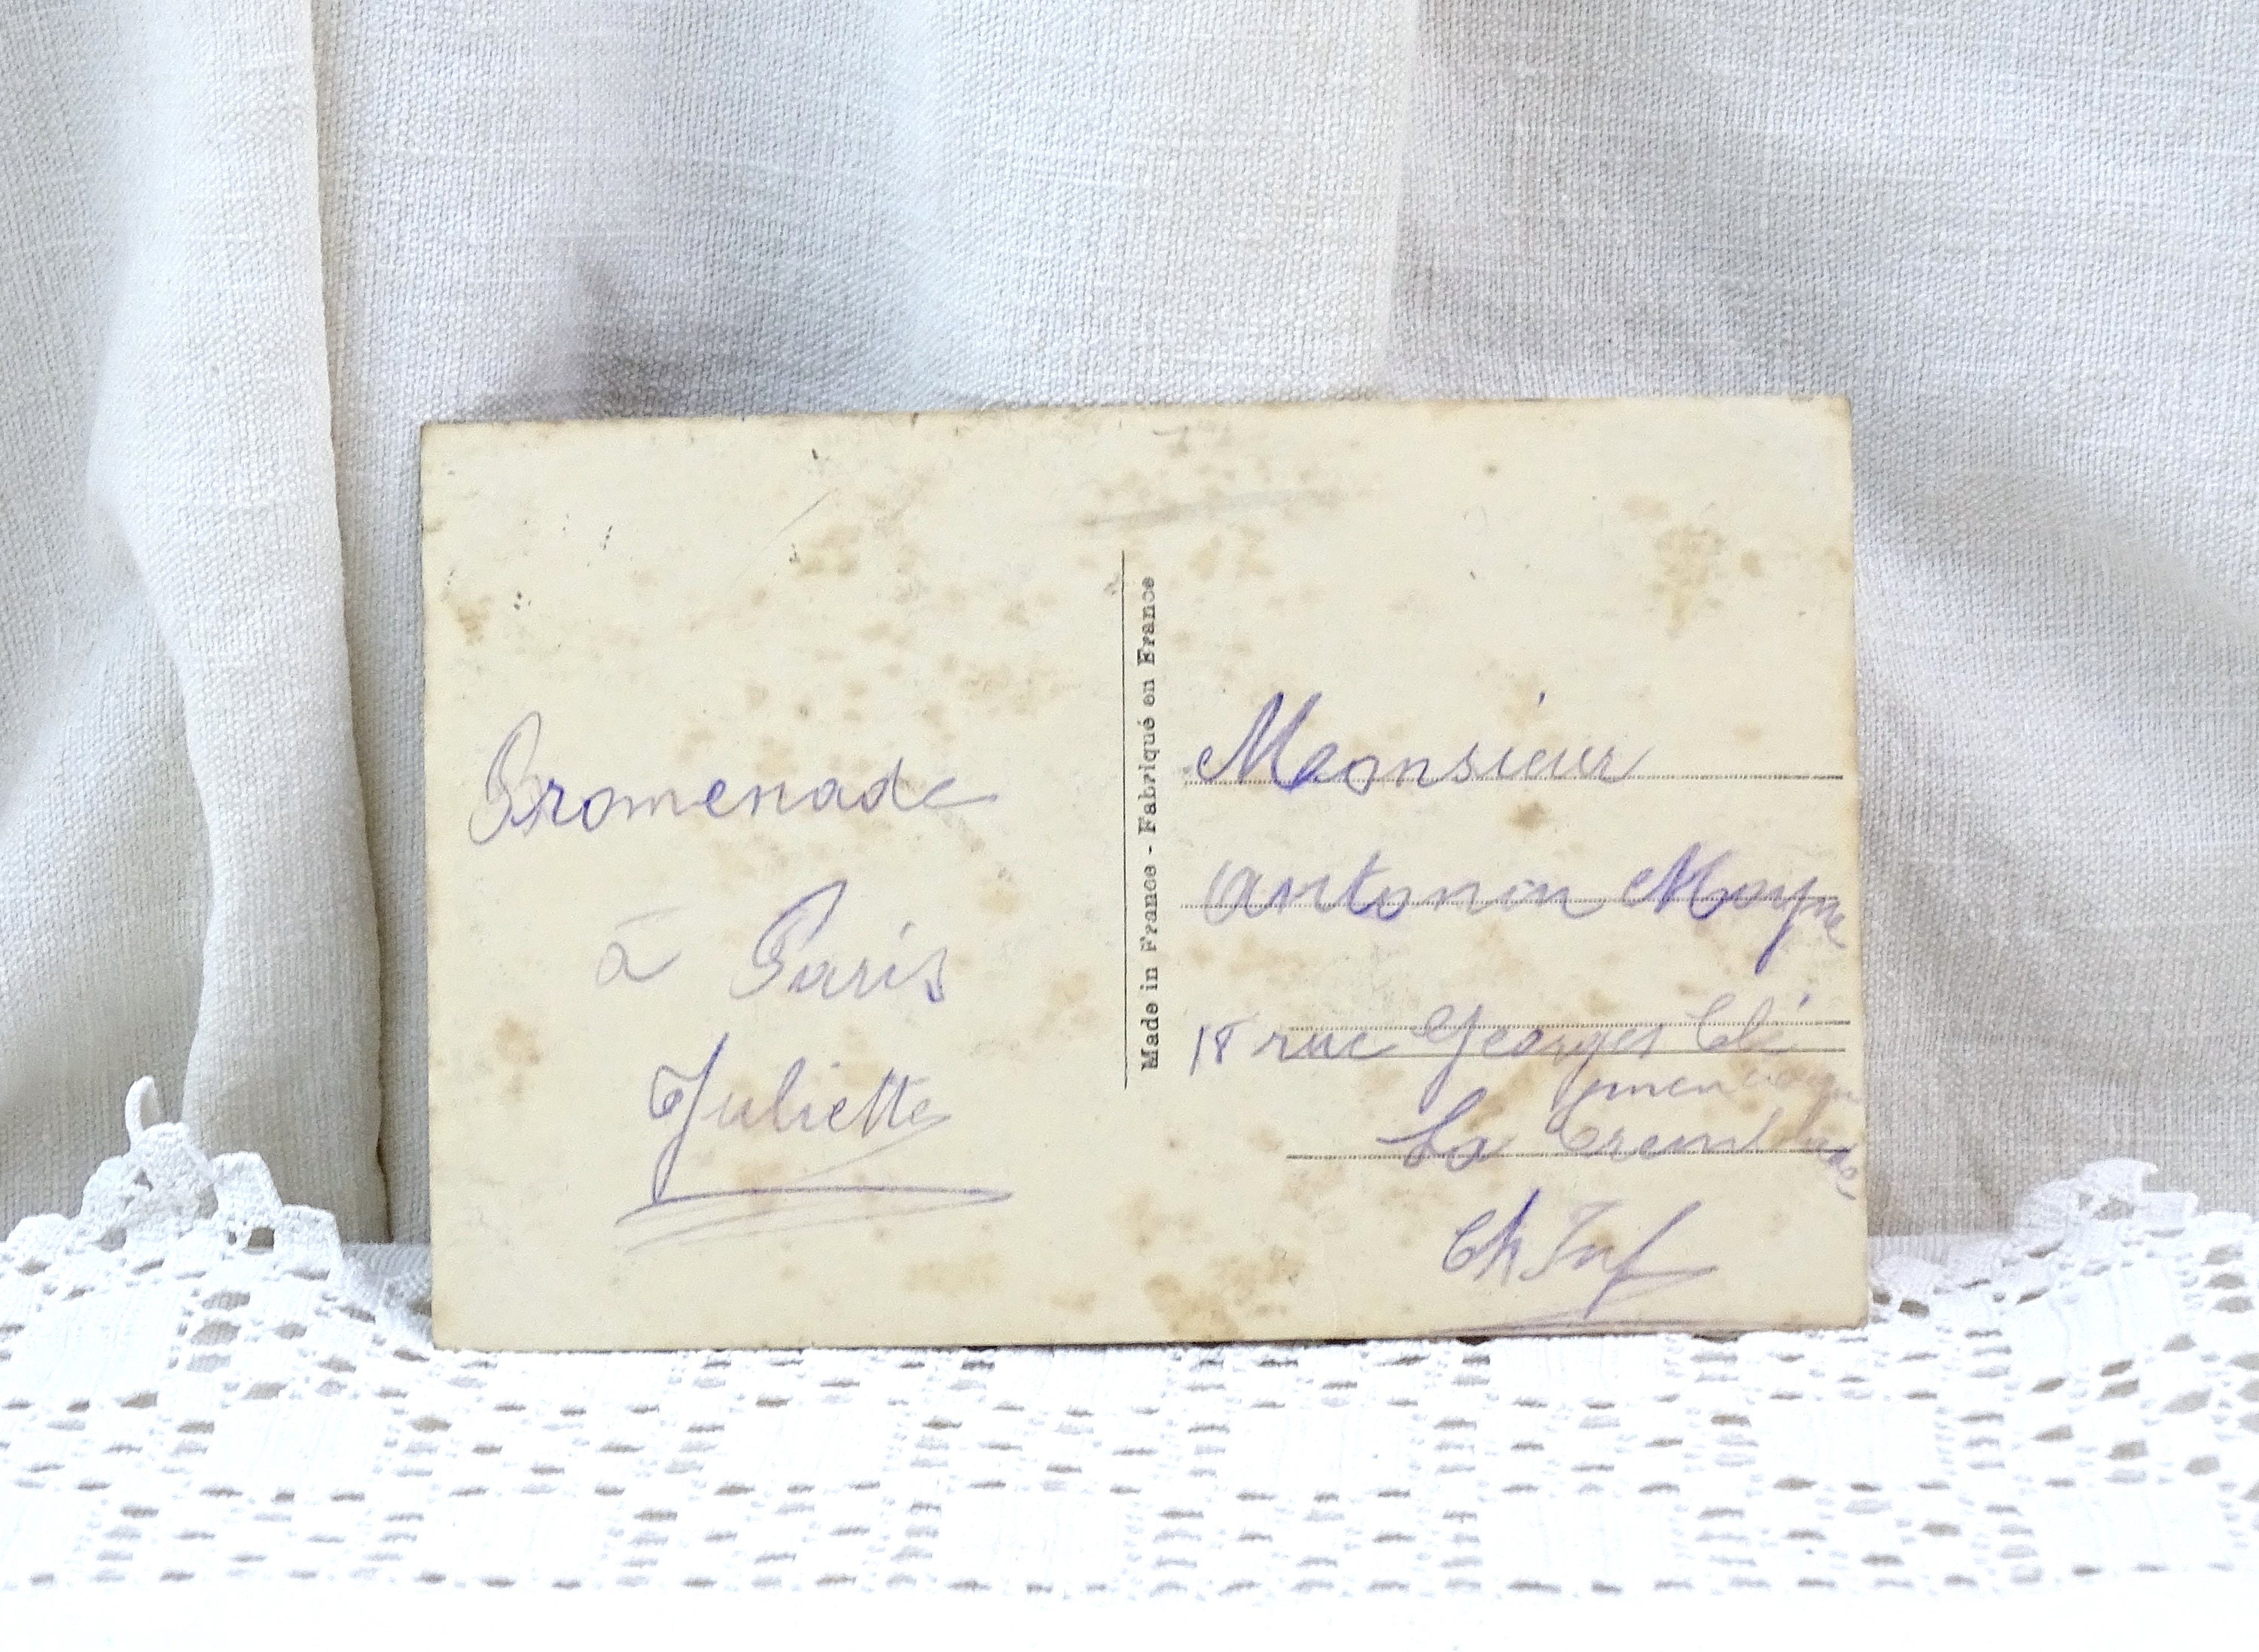 Promenade
à Paris
Juliette
Made in France - Fabriqué en France
Monsieur
Antonin Moyne
18 rue Georges Clé
menceau
La Tremblade
Ch Inf